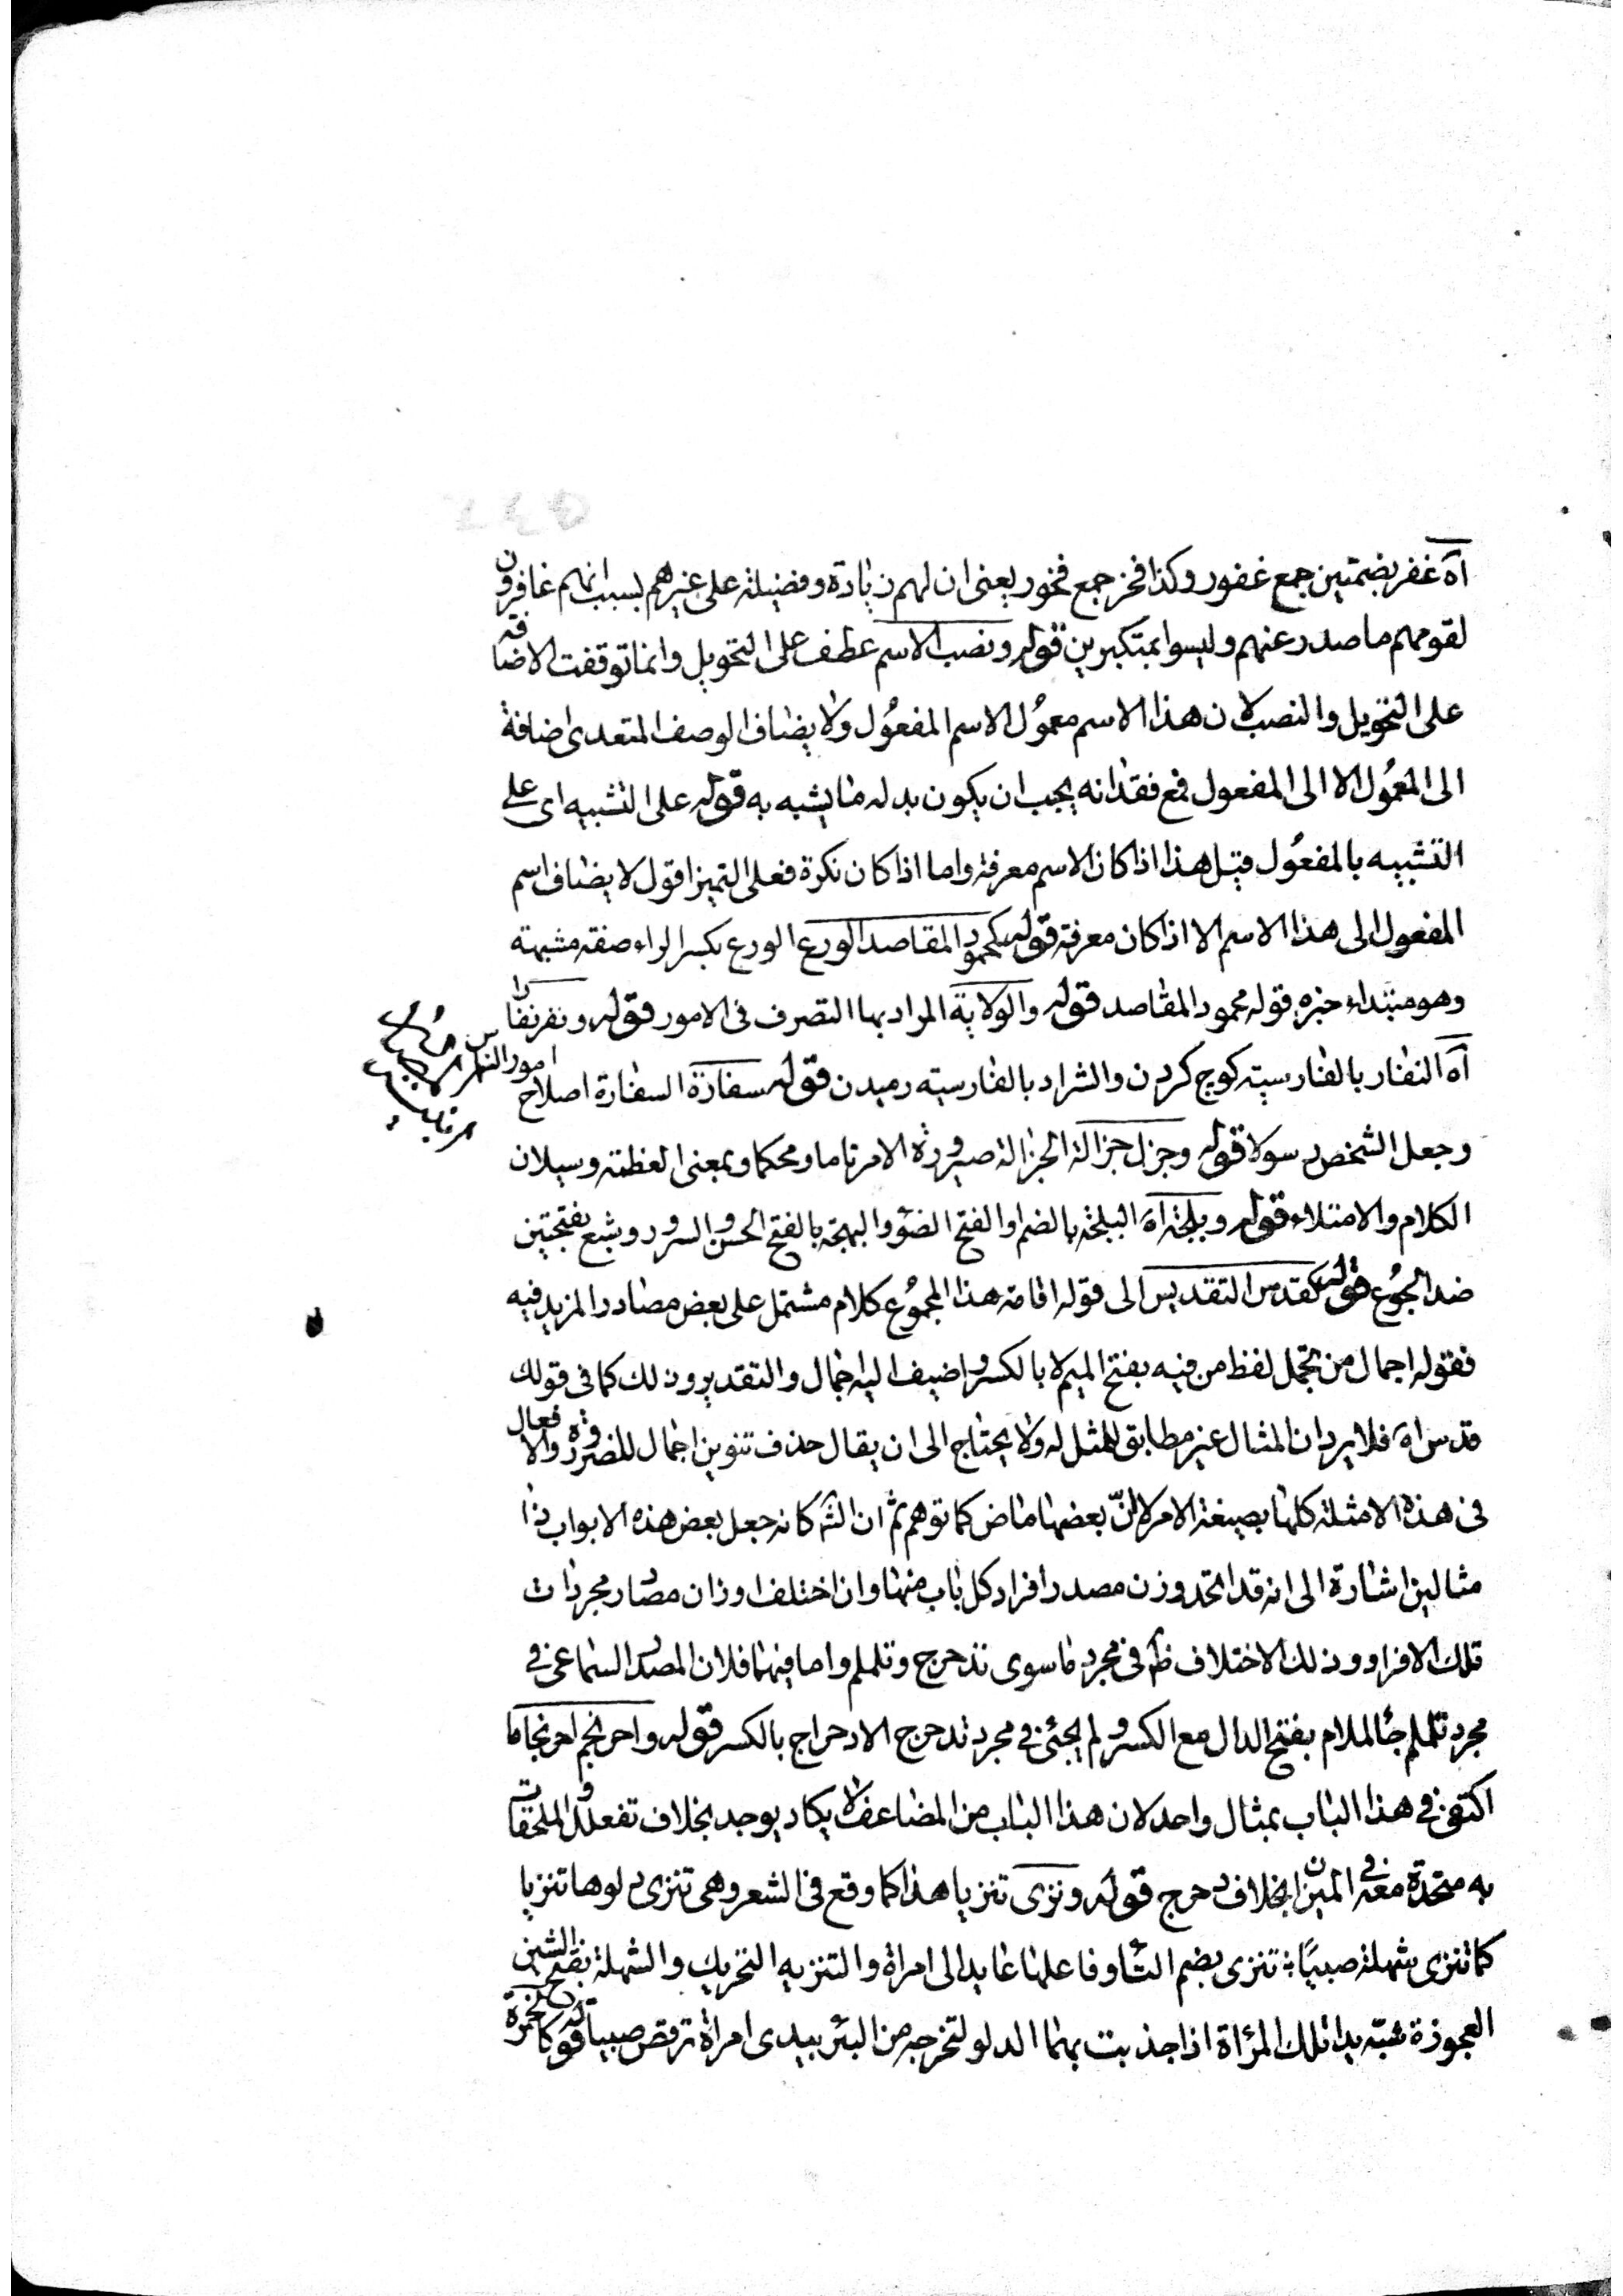 آه غفر بضمتين جمع غفور وكذا فخر جمع فخور يعنى ان لهم زيادة وفضيلة على غيرهم بسبب انهم غافرون
لقومهم ما صدر عنهم وليسوا بمتكبرين قوله ونصب الاسم عطف على التحويل وانما توقفت الاضافة
على التحويل والنصب لان هذا الاسم معمول الاسم المفعول ولا يضاف الوصف المتعدى اضافة
الى المعمول الا الى المفعول فمع فقدانه يجب ان يكون بدله ما يشبه به قوله على التشبيه اى على
التشبيه بالمفعول قيل هذا اذا كان الاسم معرفة واما اذا كان نكرة فعلى التميز اقول لا يضاف اسم
المفعول الى هذا الاسم الا اذا كان معرفة قوله كمحمود المقاصد الورع الورع بكسر الراء صفة مشبهة
وهو مبتداء خبره قوله محمود المقاصد قوله والولاية المراد بها التصرف فى الامور قوله ونفر نفارا
آه النفار بالفارسية كوچ كردن والشراد بالفارسية رميدن قوله سفارة السفارة اصلاح امور الناس
وجعل الشخص رسولا قوله وجزل جزالة الجزالة صيرورة الامر تاما ومحكما وبمعنى العظمة وسيلان
الكلام والامتلاء قوله وبلجة آه البلجة بالضم او الفتح الضوء والبهجة بالفتح الحسن والسرور وشبع بفتحتين
ضد الجوع قوله كقدس التقديس الى قوله اقامة هذا المجموع كلام مشتمل على بعض مصادر المزيد فيه
فقوله اجمال من تجمل لفظ من فيه بفتح الميم لا بالكسر واضيف اليه اجمال والتقدير وذلك كما فى قولك
قدس آه فلا يرد ان المثال غير مطابق للمثل له ولا يحتاج الى ان يقال حذف تنوين اجمال للضرورة والافعال
فى هذه الامثلة كلها بصيغة الامر لا انّ بعضها ماض كما توهم ثم ان الشه كانه جعل بعض هذه الابواب ذا
مثالين اشارة الى انه قد اتحد وزن مصدر افراد كل باب منها وان اختلف اوزان مصادر مجردات
تلك الافراد وذلك الاختلاف ظه فى مجرد ما سوى تدحرج وتلملم واما فيهما فلان المصدر السماعى فى
مجرد تلملم جاء لملام بفتح الدال مع الكسر ولم يجئ فى مجرد تدحرج الا دحراج بالكسر قوله واحرنجم احرنجاما
اكتفى فى هذا الباب بمثال واحد لان هذا الباب من المضاعف لا يكاد يوجد بخلاف تفعلل والملحقات
به متحدة معه فى الميزان بخلاف دحرج قوله ونزى تنزيا هذا كما وقع فى الشعر وهى تنزى دلوها تنزيا
كما تنزى شهلة صبيًا تنزى بضم التاء وفاعلها عايد الى امراة والتنزيه التحريك والشهلة بفتح الشين
العجوزة شبّه يدا تلك المرأة اذا جذبت بهما الدلو لتخرجه من البئر بيدى امراة ترقص صبيا قوله كالحمرة